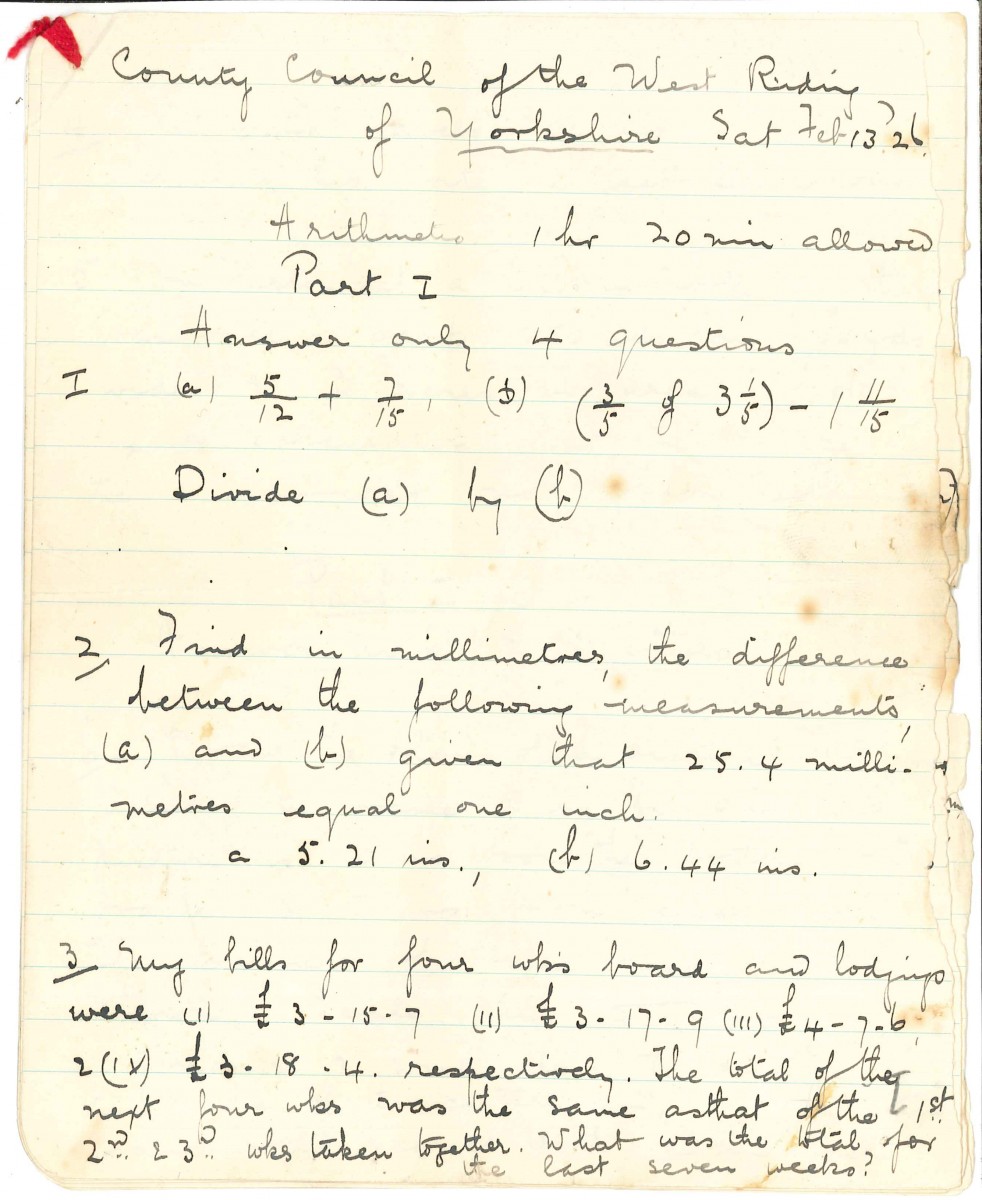 County Council of the West Riding
of Yorkshire Sat Feb 13 26.
Arithmetic 1 hr 20 min allowed
Part I
Answer only 4 questions
I (a) 5/12 + 7/15, (b) (3/5 of 3 1/5) - 1 11/15
Divide (a) by (b)
2, Find in millimetres, the difference
between the following measurements,
(a) and (b) given that 25.4 milli-
metres equal one inch.
a 5.21 ins., (b) 6.44 ins.
3 My bills for four wks board and lodgings
were (I) £3-15-7 (II) £3-17-9 (III) £4-7-6,
& (IV) £3-18-4. respectively. The total of the
next four wks was the same as that of the 1st
2nd & 3rd wks taken together. What was the total for
the last seven weeks?